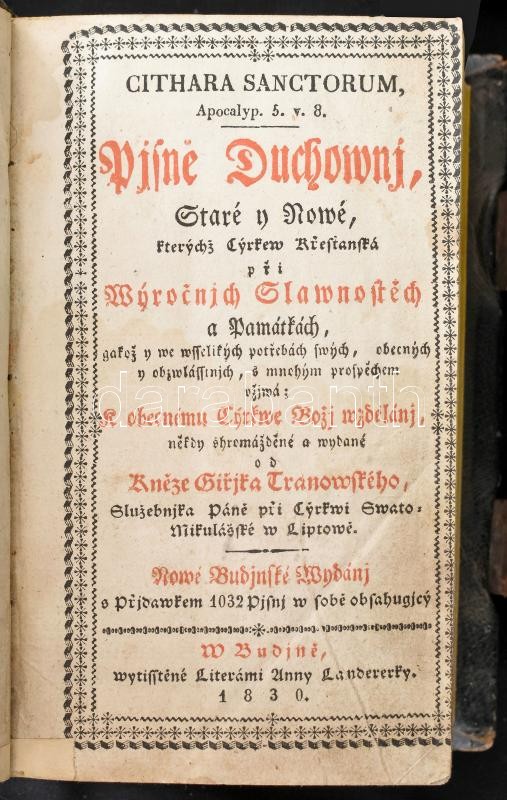 CITHARA SANCTORUM,
Apocalyp. 5. v. 8.
Pjsně Duchownj,
Staré y Nowé,
kterýchž Cýrkew Křestanská
při
Weýročnjch Slawnostěch
a Památkách,
gakož y we wsselikých potřebách swých, obecných
y obzwlásstnjch, s mnohým prospěchem
vžjwá:
K obecnému Cýrkwe Božj wzdělánj,
někdy shromážděné a wydané
od
Kněze Giřjka Tranowského,
Služebnjka Páně při Cýrkwi Swato-
Mikulášské w Liptowě.
Nowé Budjnské Wydánj
s Přjdawkem 1032 Pjsnj w sobě obsahugjcý
W Budjně,
wytisstěné Literámi Anny Landererky.
1830.